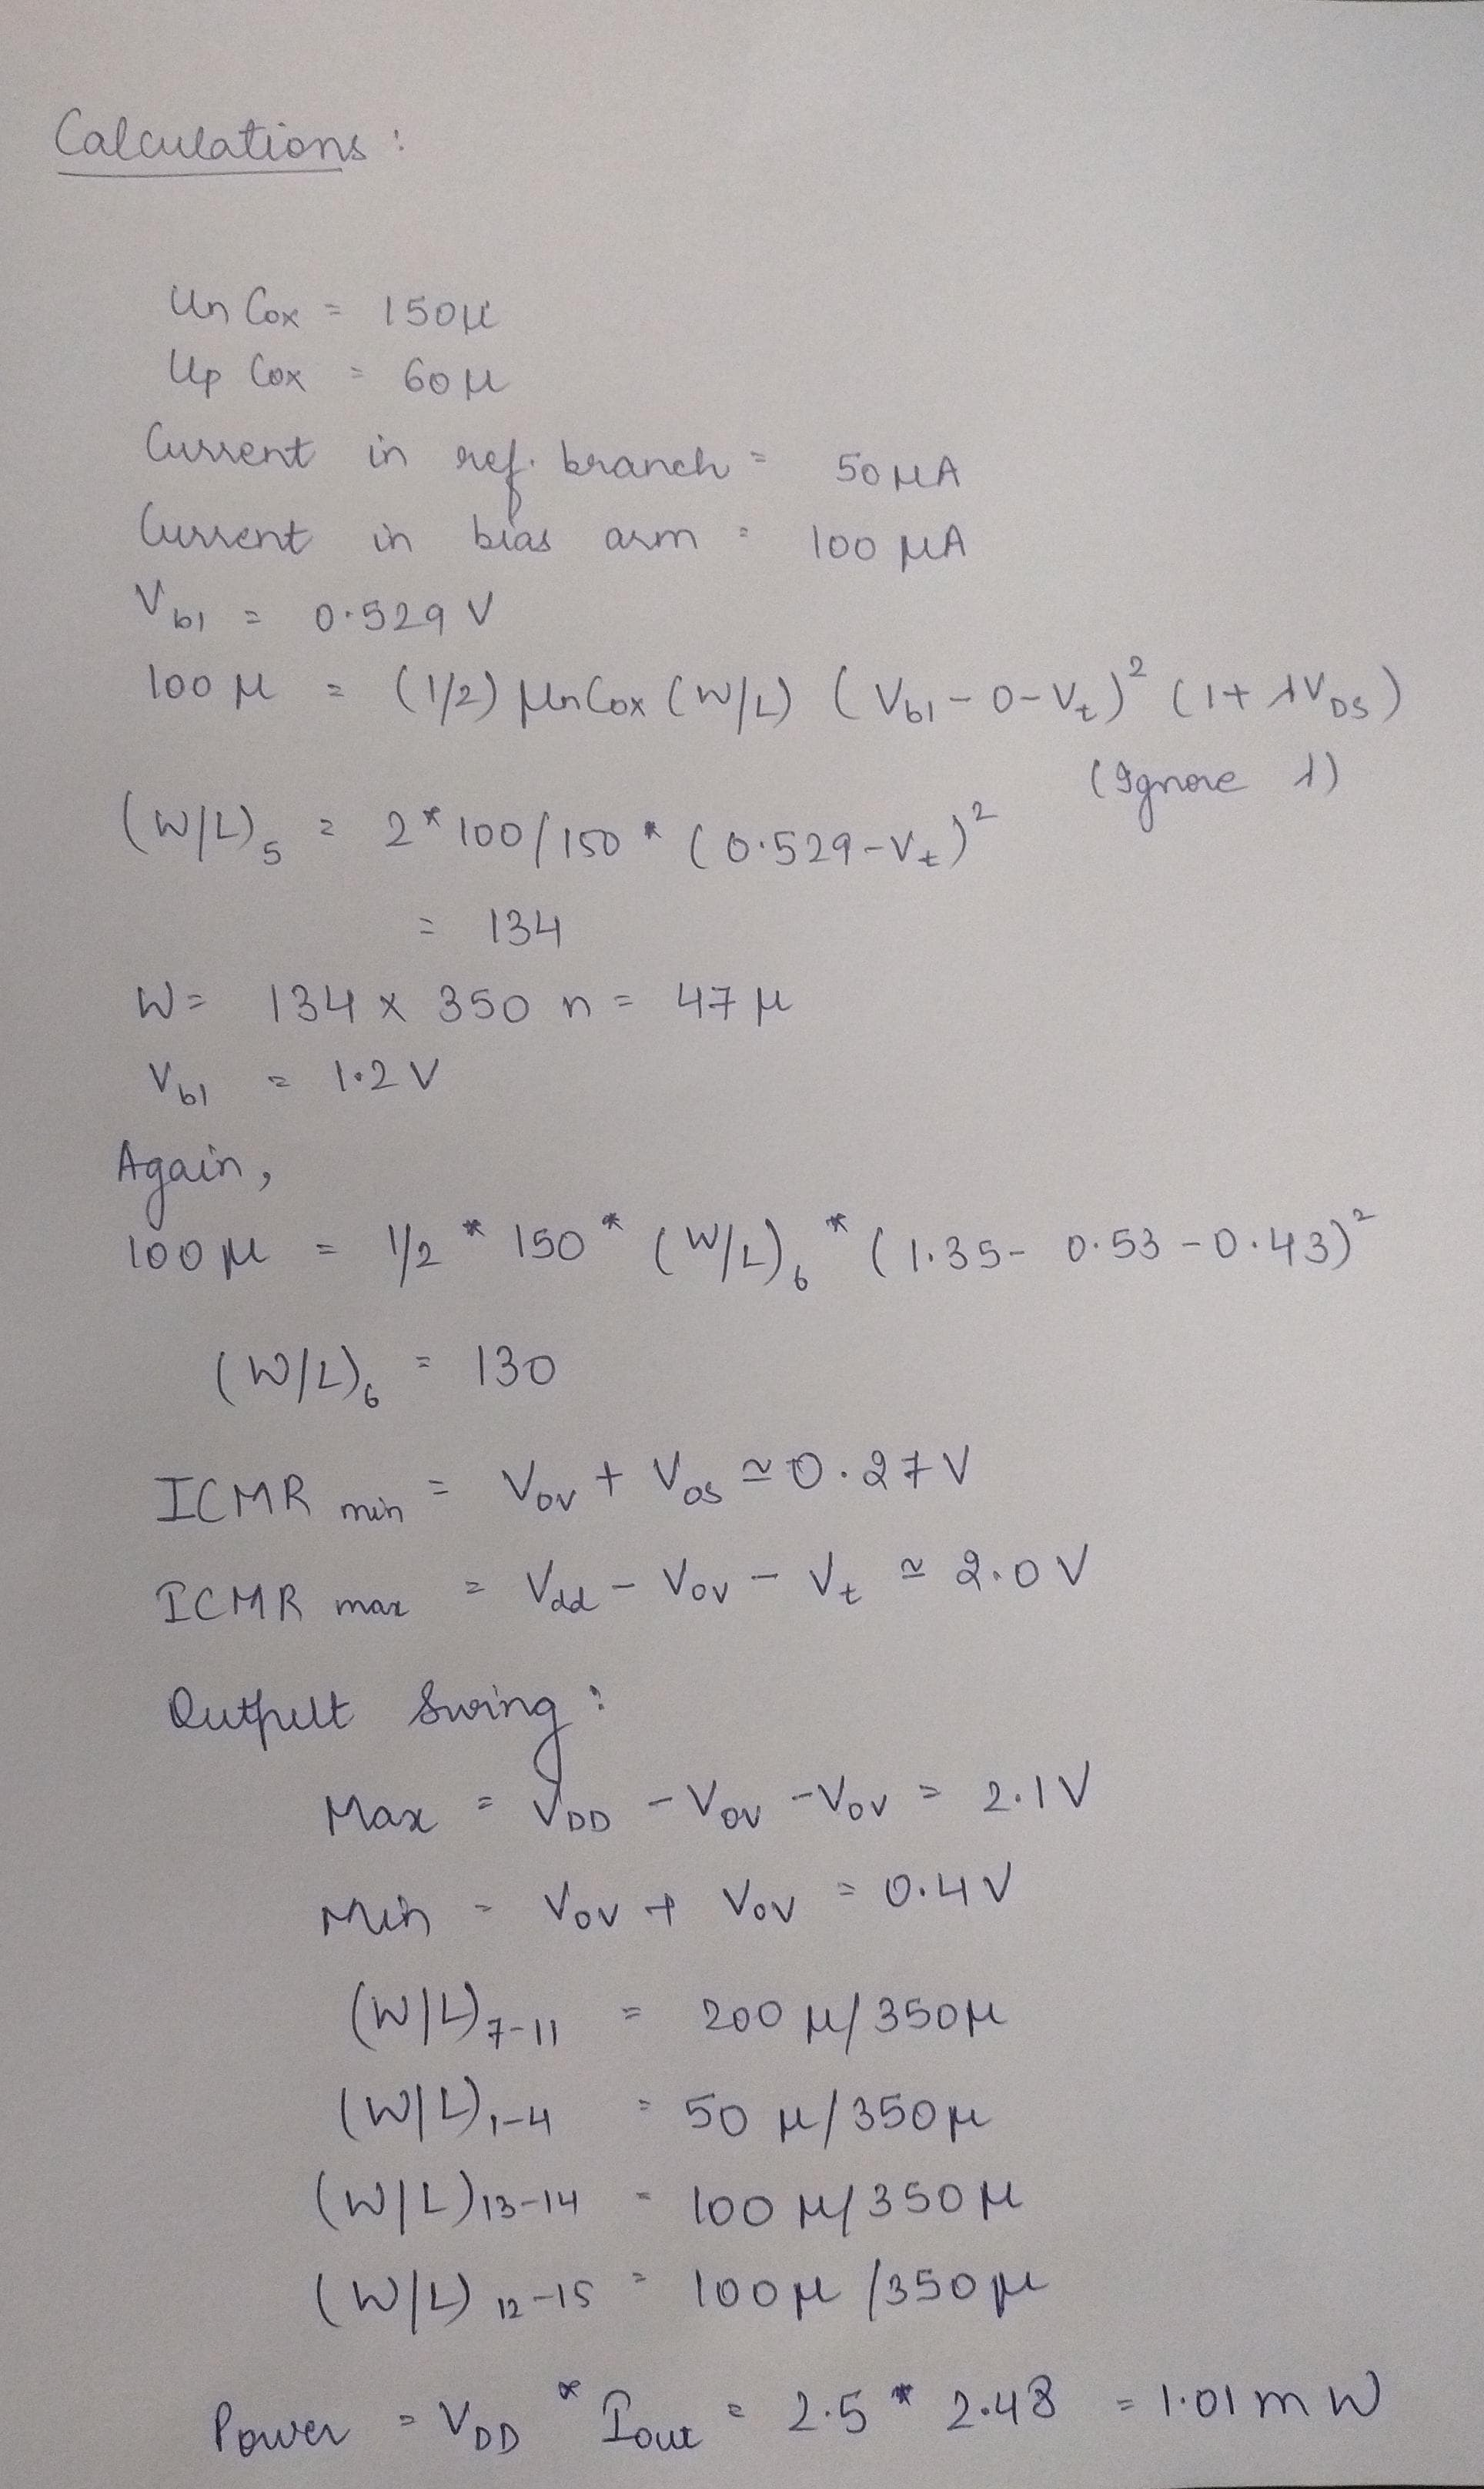 Calculations :
Un Cox = 150μ
Up Cox = 60μ
Current in ref. branch = 50 μA
Current in bias arm = 100 μA
Vb1 = 0.529 V
100 μ = (1/2) μnCox (W/L) (Vb1 - 0 - Vt)² (1 + λVDS)
(Ignore λ)
(W/L)5 = 2*100/150 * (0.529 - Vt)²
= 134
W = 134 x 350 n = 47 μ
Vb1 = 1.2 V
Again,
100 μ = 1/2 * 150 * (W/L)6 * (1.35 - 0.53 - 0.43)²
(W/L)6 = 130
ICMR min = Vov + Vos ≃ 0.27 V
ICMR max = Vdd - Vov - Vt ≃ 2.0 V
Output Swing :
Max = VDD - Vov - Vov = 2.1 V
Min = Vov + Vov = 0.4 V
(W/L)7-11 = 200 μ/350μ
(W/L)1-4 = 50 μ/350μ
(W/L)13-14 = 100 μ/350μ
(W/L)12-15 = 100μ /350μ
Power = VDD * Iout = 2.5 * 2.48 = 1.01 mW